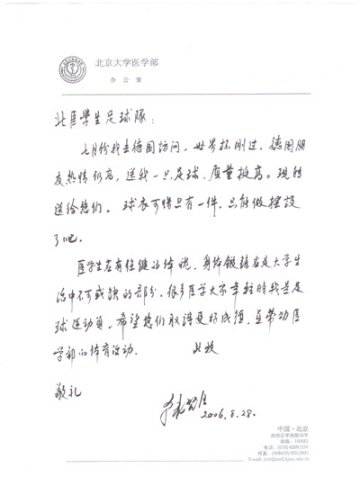 北京大学医学部
办公室
北医学生足球队：
七月份我去德国访问，世界杯刚过，德国朋
友热情仍高，送我一只足球，质量挺高。现转
送给您们。球衣可惜只有一件，只能做摆设
了吧。
医学生应有健康的体魄，身体锻炼应是大学生
活中不可或缺的部分，很多医学大家年轻时就是足
球运动员。希望您们取得更好成绩，并带动医
学部的体育活动。 此致
敬礼
2006.8.28.
中国·北京